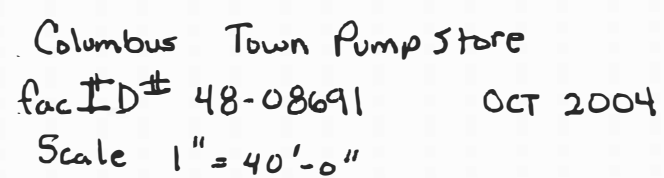 Columbus Town Pump Store
fac ID# 48-08691 OCT 2004
Scale 1" = 40'-0"